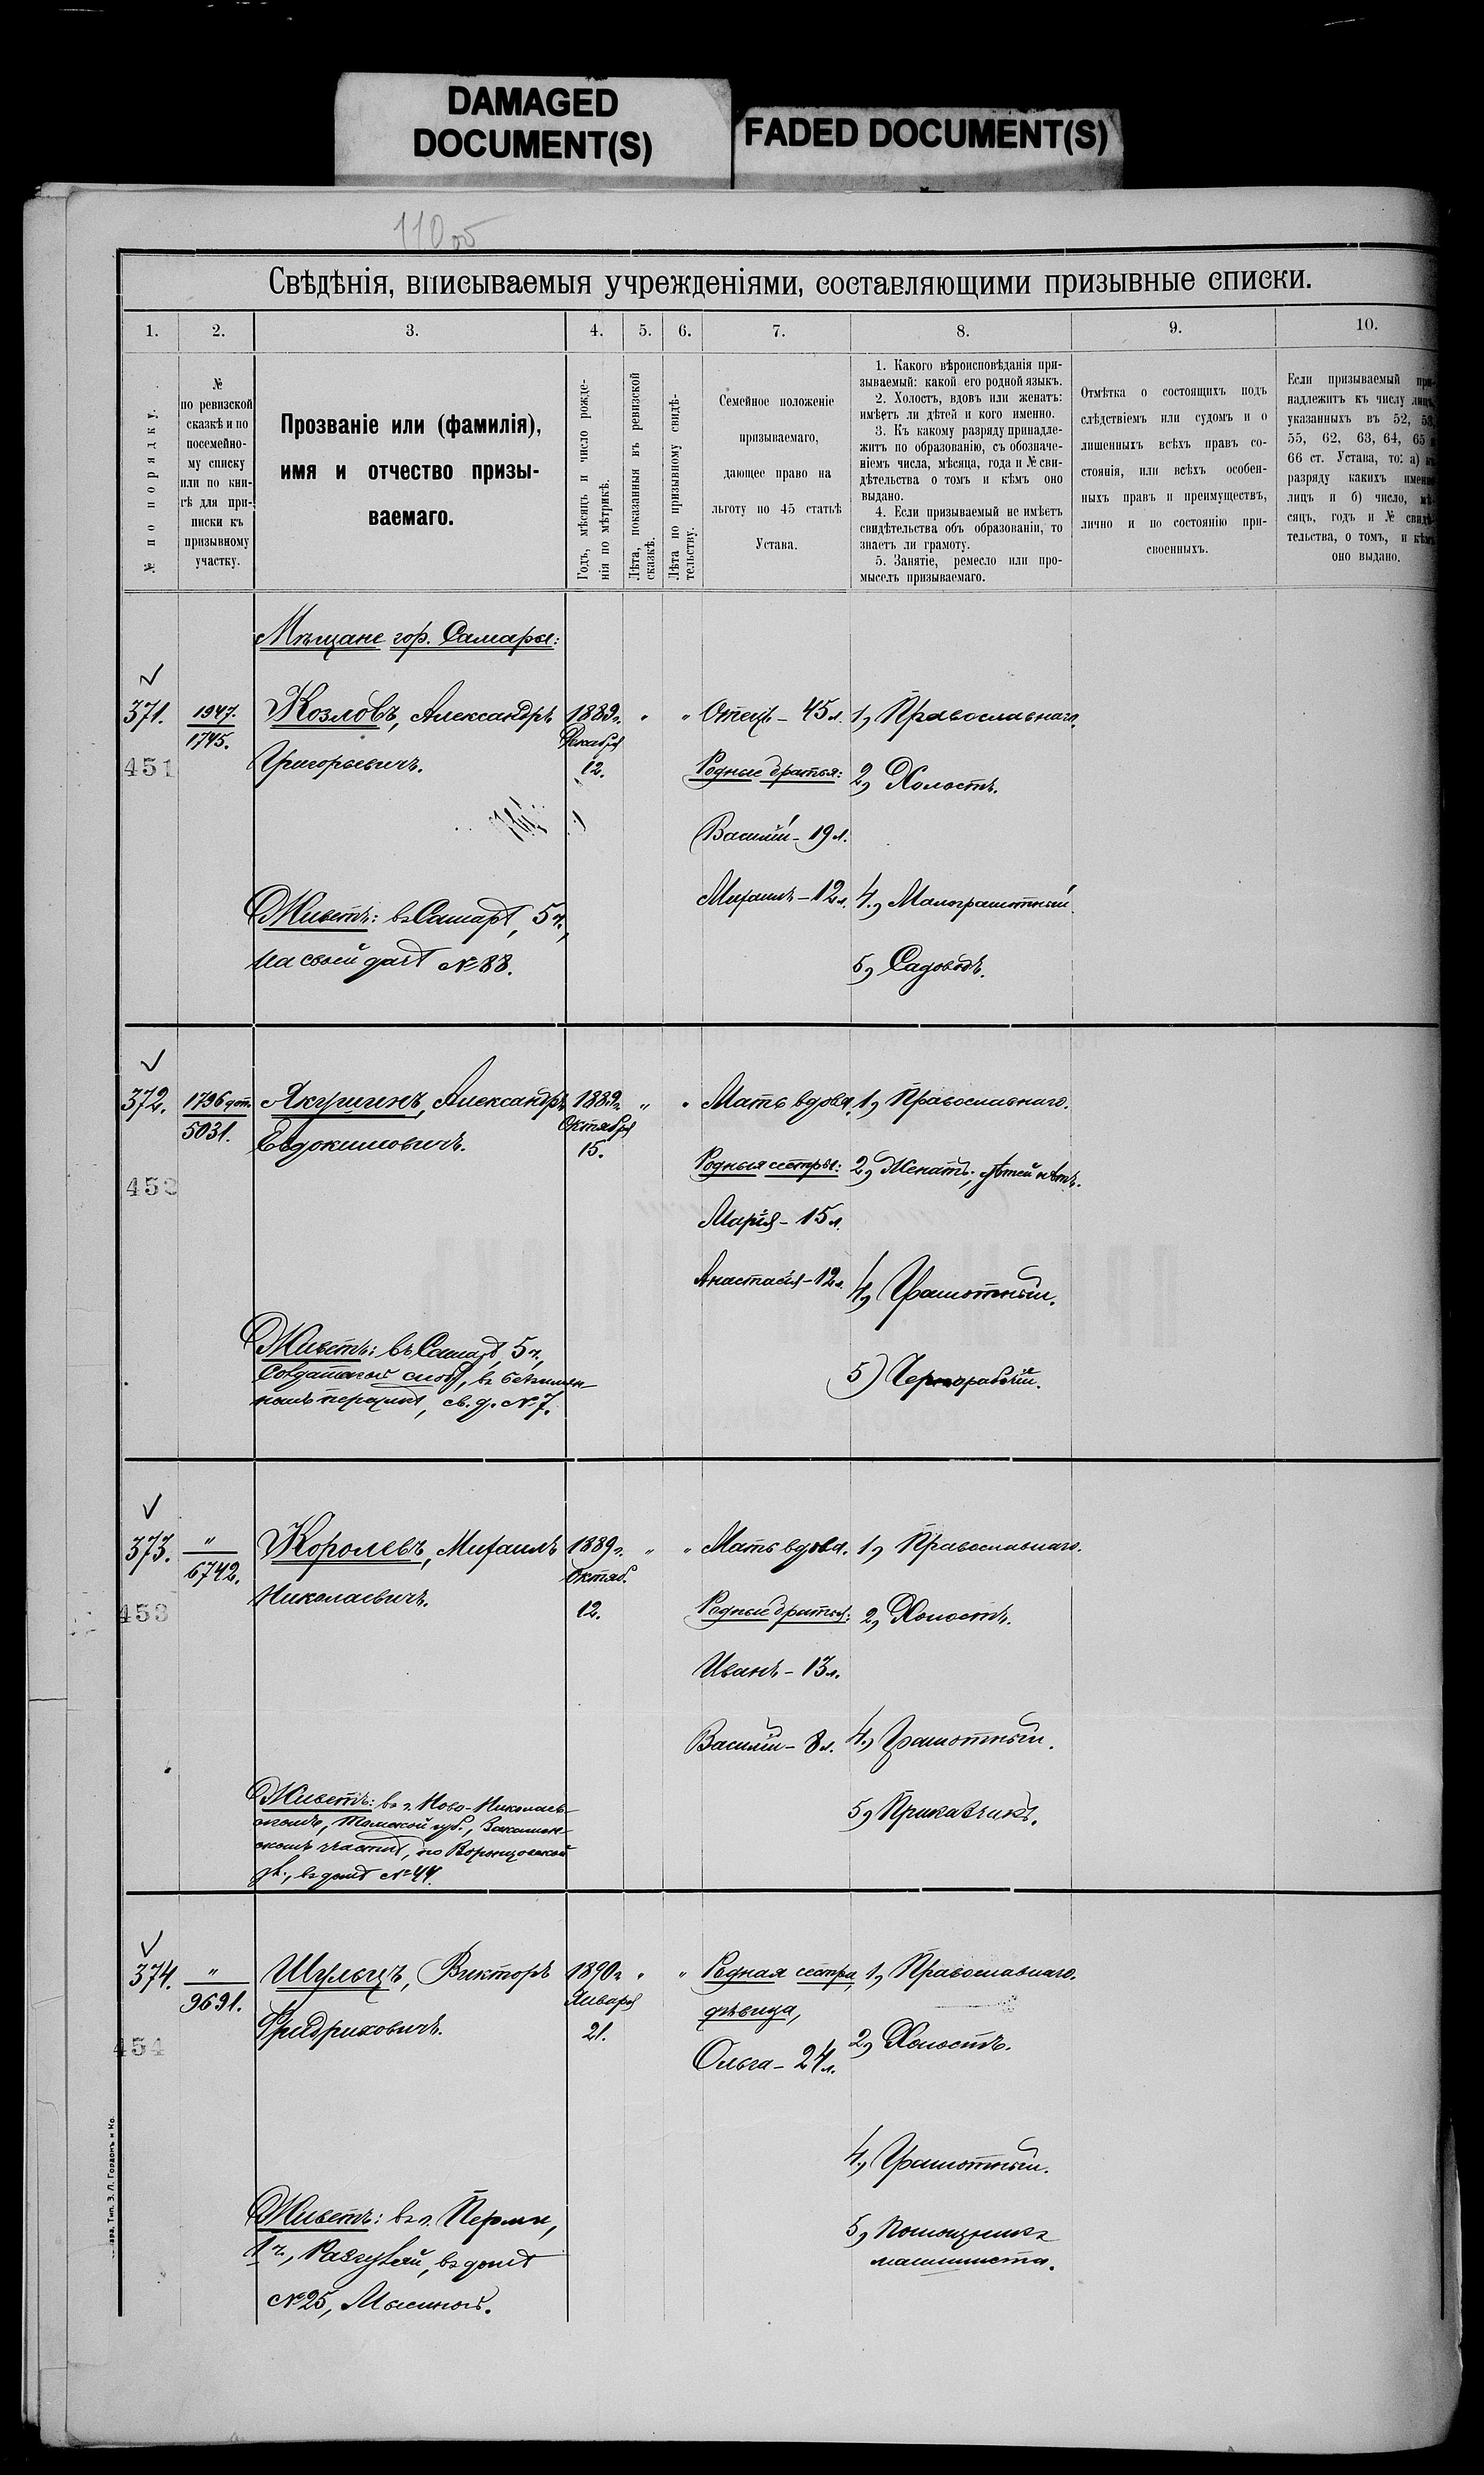 DAMAGED
DOCUMENT(S)
FADED DOCUMENT(S)
110 об
Свѣдѣнія, вписываемыя учрежденіями, составляющими призывные списки.
1.
2.
3.
4.
5.
6.
7.
8.
9.
10.
№ по порядку.
№
по ревизской
сказкѣ и по
посемейно-
му списку
или по кни-
гѣ для при-
писки къ
призывному
участку.
Прозваніе или (фамилія),
имя и отчество призы-
ваемаго.
Годъ, мѣсяцъ и число рожде-
нія по метрикѣ.
Лѣта, показанныя въ ревизской
сказкѣ.
Лѣта по призывному свидѣ-
тельству.
Семейное положеніе
призываемаго,
дающее право на
льготу по 45 статьѣ
Устава.
1. Какого вѣроисповѣданія при-
зываемый: какой его родной языкъ.
2. Холостъ, вдовъ или женатъ:
имѣетъ ли дѣтей и кого именно.
3. Къ какому разряду принадле-
житъ по образованію, съ обозначе-
ніемъ числа, мѣсяца, года и № сви-
дѣтельства о томъ и кѣмъ оно
выдано.
4. Если призываемый не имѣетъ
свидѣтельства объ образованіи, то
знаетъ ли грамоту.
5. Занятіе, ремесло или про-
мыселъ призываемаго.
Отмѣтка о состоящихъ подъ
слѣдствіемъ или судомъ и о
лишенныхъ всѣхъ правъ со-
стоянія, или всѣхъ особен-
ныхъ правъ и преимуществъ,
лично и по состоянію при-
своенныхъ.
Если призываемый при-
надлежитъ къ числу лицъ,
указанныхъ въ 52, 53,
55, 62, 63, 64, 65 и
66 ст. Устава, то: а) къ
разряду какихъ именно
лицъ и б) число, мѣ-
сяцъ, годъ и № свидѣ-
тельства, о томъ, и кѣмъ
оно выдано.
Мѣщане гор. Самары:
371.
451
1947.
1745.
Козловъ, Александръ
Григорьевичъ.
Живетъ: въ Самарѣ, 5 ч.,
на своей дачѣ № 88.
1889 г.
Декабря
12.
"
"
Отецъ - 45 л.
Родные братья:
Василій - 19 л.
Михаилъ - 12 л.
1, Православнаго.
2, Холостъ.
4, Малограмотный.
5, Садоводъ.
372.
452
1796 доп.
5031.
Якушинъ, Александръ
Евдокимовичъ.
Живетъ: въ Самарѣ, 5 ч.,
Солдатской слоб., въ безымян-
номъ переулкѣ, св. д. № 7.
1889 г.
Октября
15.
"
"
Мать вдова.
Родныя сестры:
Марія - 15 л.
Анастасія - 12 л.
1, Православнаго.
2, Женатъ; дѣтей нѣтъ.
4, Грамотный.
5) Чернорабочій.
373.
453
"
6742.
Королевъ, Михаилъ
Николаевичъ.
Живетъ: въ г. Ново-Николаев-
скомъ, Томской губ., Закамен-
ской части, по Воронцовской
ул., въ домѣ № 44.
1889 г.
Октяб.
12.
"
"
Мать вдова.
Родные братья:
Иванъ - 13 л.
Василій - 8 л.
1, Православнаго.
2, Холостъ.
4, Грамотный.
5, Приказчикъ.
374.
454
"
9691.
Шульцъ, Викторъ
Фридриховичъ.
Живетъ: въ г. Перми,
1 ч., Разгуляй, въ домѣ
№ 25, Мысиной.
1890 г.
Января
21.
"
"
Родная сестра,
дѣвица,
Ольга - 24 л.
1, Православнаго.
2, Холостъ.
4, Грамотный.
5, Помощникъ
машиниста.
Тип. З. Л. Гордонъ и Ко.